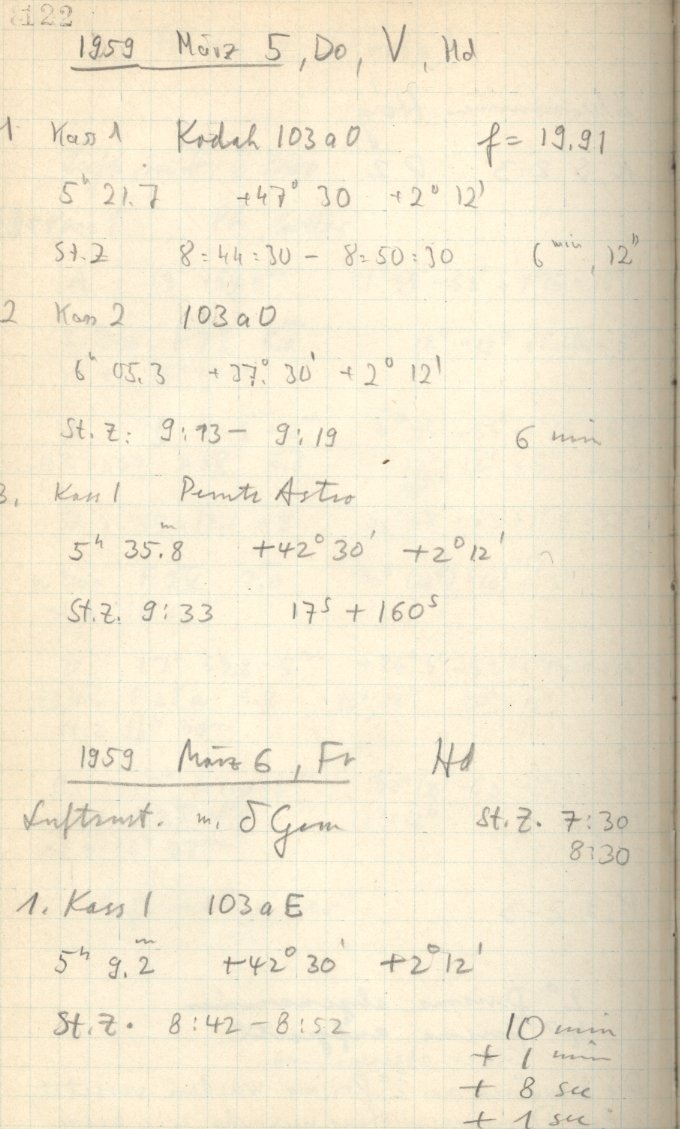 122
1959 März 5, Do, V, Hd
1 Kass 1 Kodak 103aO f = 19.91
5h 21.7 +47° 30 +2° 12'
St.Z 8:44:30 - 8:50:30 6 min, 12"
2 Kass 2 103aO
6h 05.3 +37° 30' +2° 12'
St.Z: 9:13 - 9:19 6 min
3. Kass 1 Perutz Astro
5h 35.8m +42° 30' +2° 12'
St.Z. 9:33 17s + 160s
1959 März 6, Fr Hd
m. δ Gem St.Z. 7:30
8:30
1. Kass 1 103aE
5h 9.2m +42° 30' +2° 12'
St.Z. 8:42 - 8:52 10 min
+ 1 min
+ 8 sec
+ 1 sec